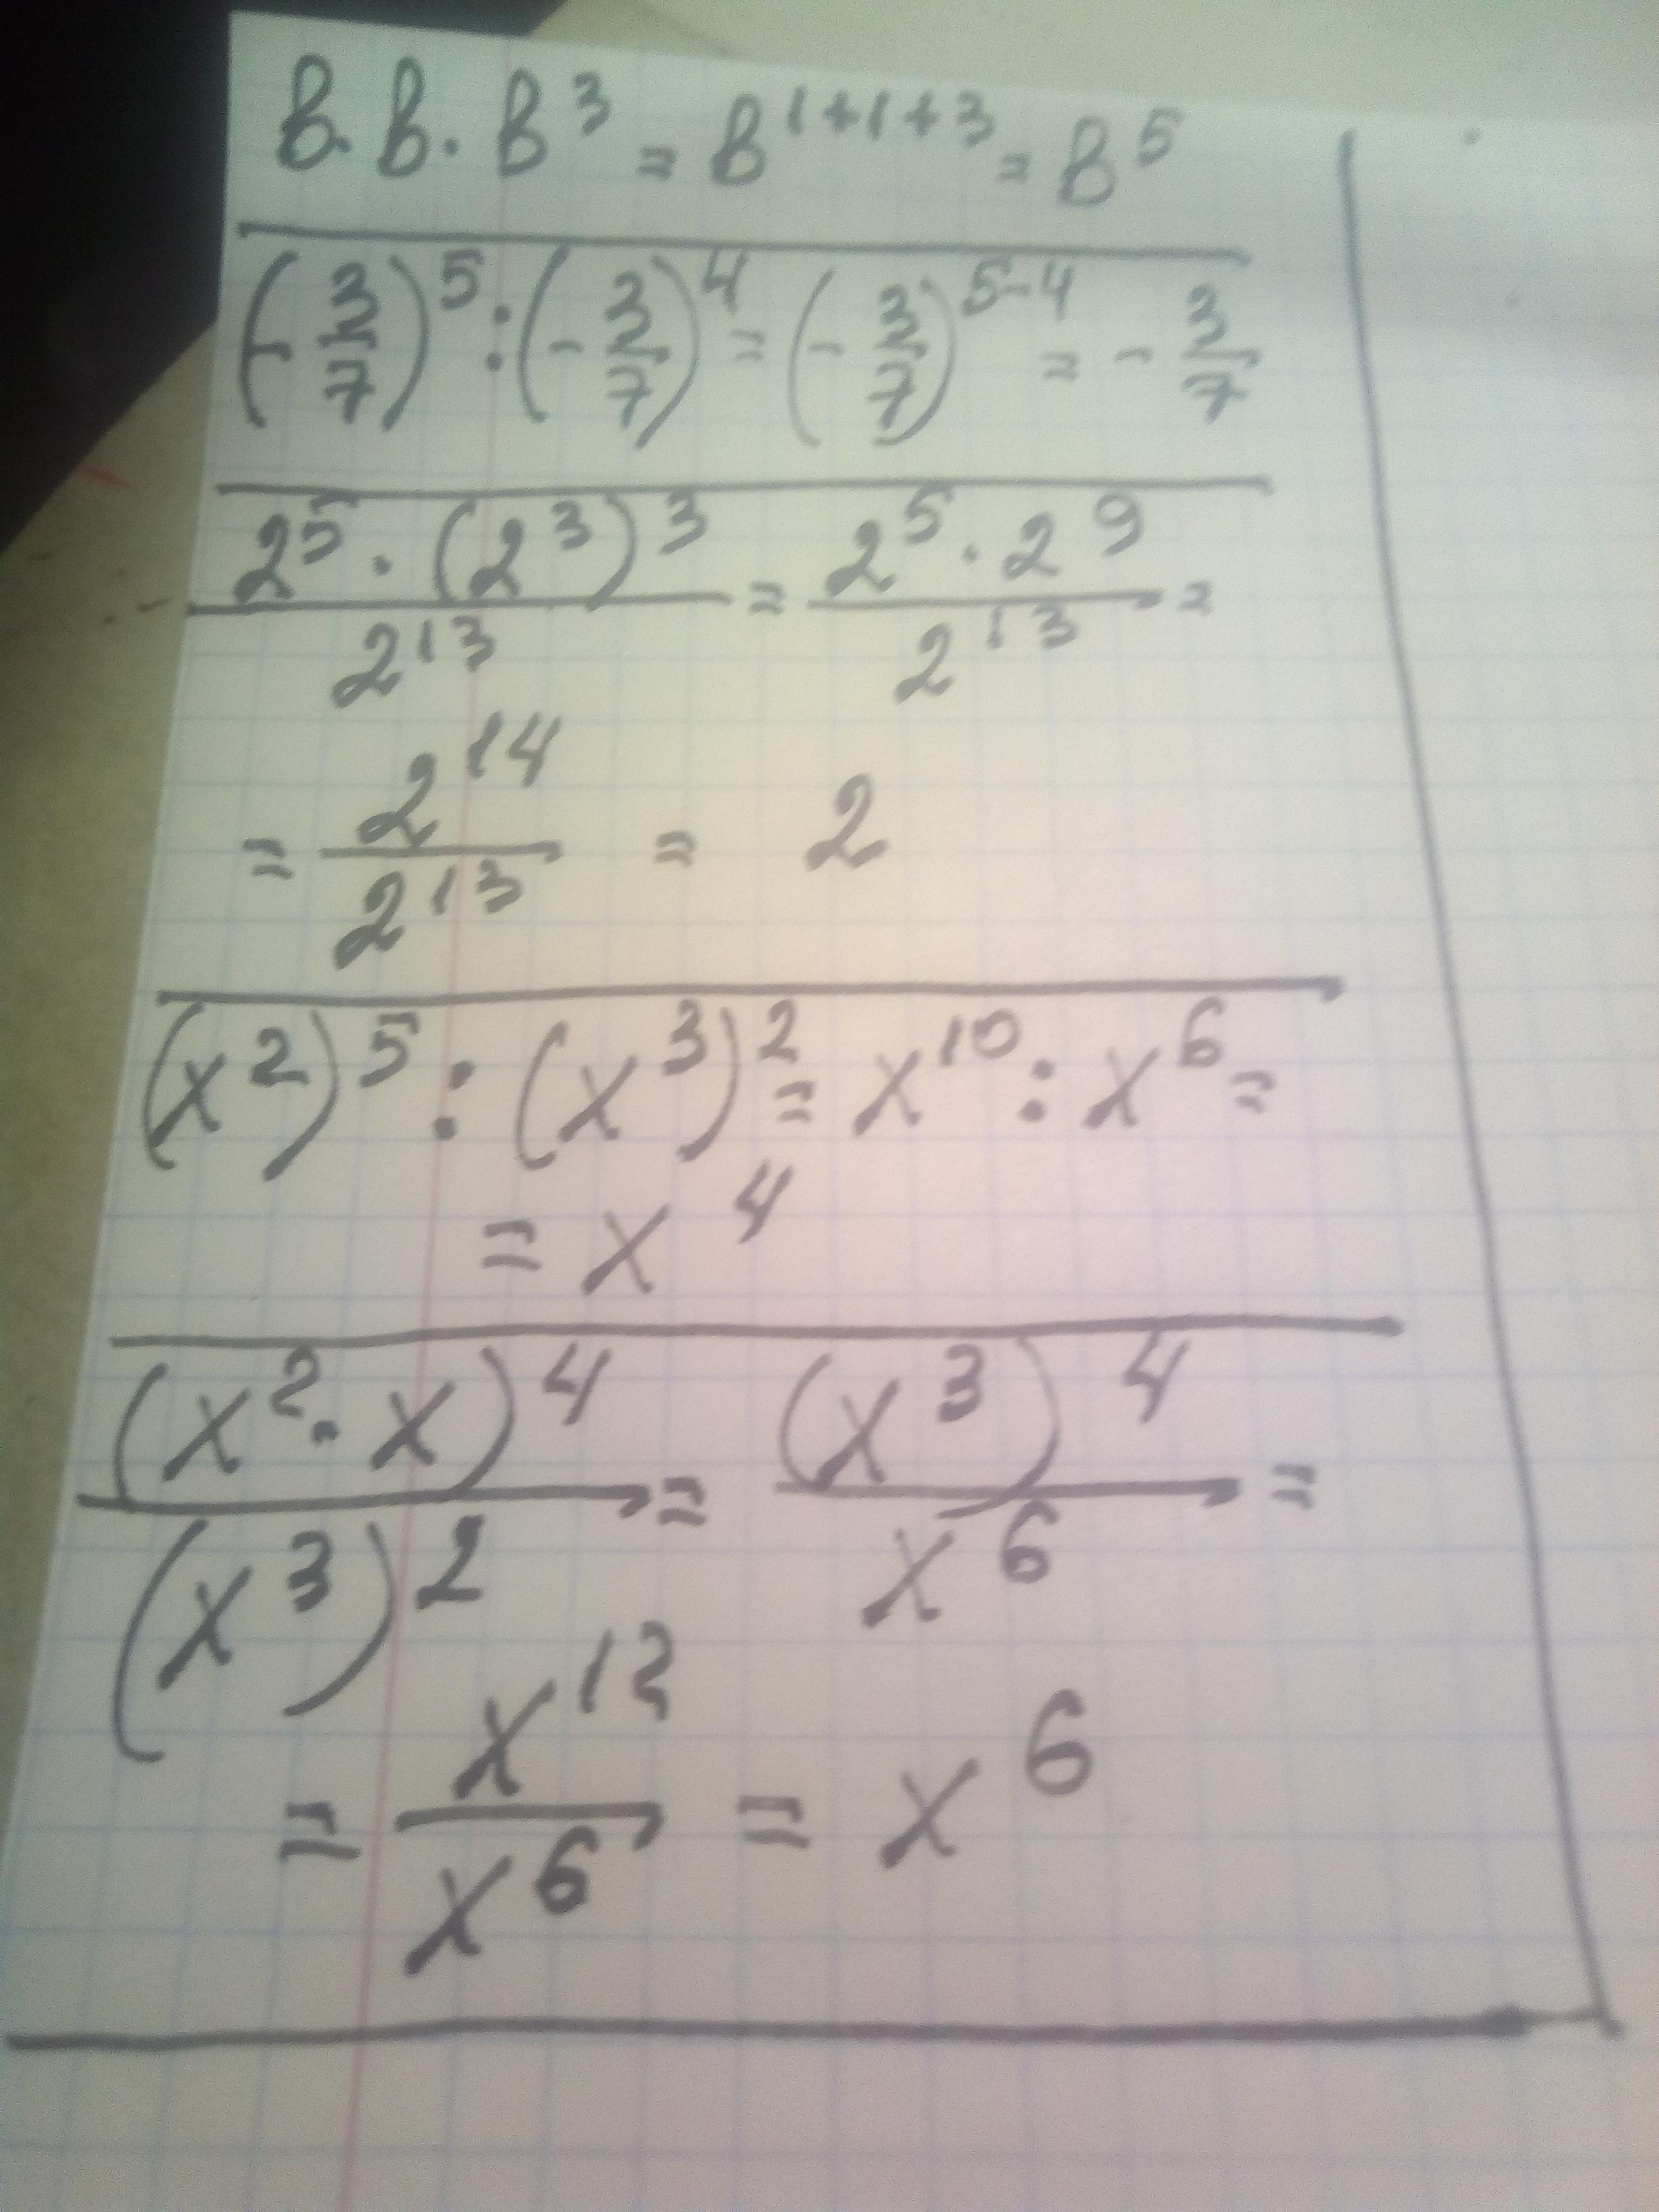 в. в. в³ = в¹⁺¹⁺³ = в⁵
(-3/7)⁵ : (-3/7)⁴ = (-3/7)⁵⁻⁴ = -3/7
2⁵ · (2³)³ / 2¹³ = 2⁵ · 2⁹ / 2¹³ =
= 2¹⁴ / 2¹³ = 2
(x²)⁵ : (x³)² = x¹⁰ : x⁶ =
= x⁴
(x² · x)⁴ / (x³)² = (x³)⁴ / x⁶ =
= x¹² / x⁶ = x⁶